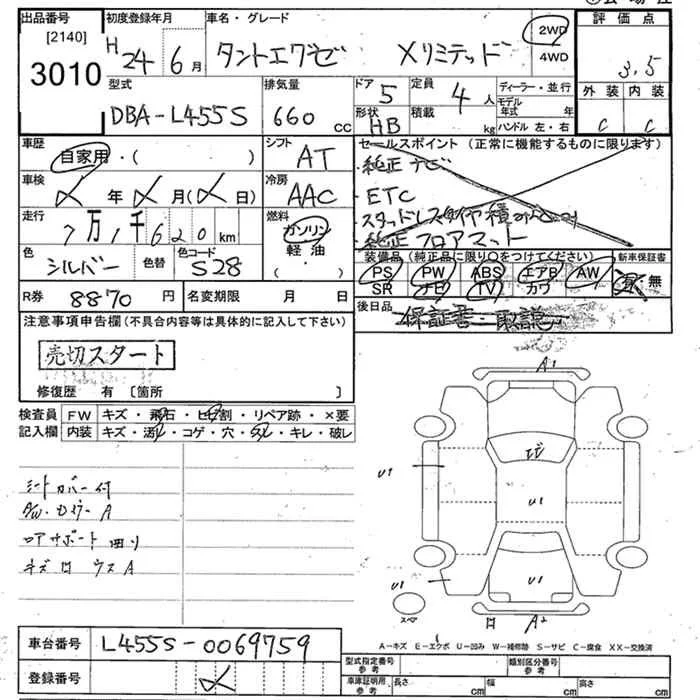 出品番号 初度登録年月 車名・グレード 評価点
[2140]
3010
H 24 6月 タントエグゼ Xリミテッド 2WD 4WD 3.5
型式 排気量 ドア 定員 ディーラー・並行 外装 内装
DBA-L455S 660cc 5 4人 モデル年式 年
形状 HB 積載 kg ハンドル 左・右 C C
車歴 自家用・( ) シフト AT セールスポイント (正常に機能するものに限ります)
・純正ナビ
・ETC
・純正フロアマット
車検 年 月( 日) 冷房 AAC
走行 7万1千620km 燃料 ガソリン 軽油
色 シルバー 色替 色コード S28
装備品(純正品に限り○をつけてください) 新車保証書
PS PW ABS エアB AW 有 無
SR ナビ TV カワ
R券 8870円 名変期限 月 日
後日品 保証書・取説
注意事項申告欄(不具合内容等は具体的に記入して下さい)
売切スタート
修復歴 有 〔箇所 〕
検査員 FW キズ・飛石・ヒビ割・リペア跡・×要
記入欄 内装 キズ・汚レ・コゲ・穴・スレ・キレ・破レ
シートカバー付
A1
U1
U1
U1
U1
A2
スペア
A-キズ E-エクボ U-凹み W-補修跡 S-サビ C-腐食 XX-交換済
車台番号 L455S-0069759
登録番号
型式指定番号 参考 類別区分番号 参考
車庫証明用 参考 長さ cm 幅 cm 高さ cm